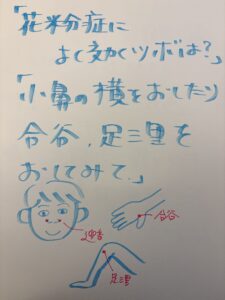 「花粉症に
よく効くツボは?」
「小鼻の横をおしたり
合谷、足三里を
おしてみて。」
迎香
合谷
足三里